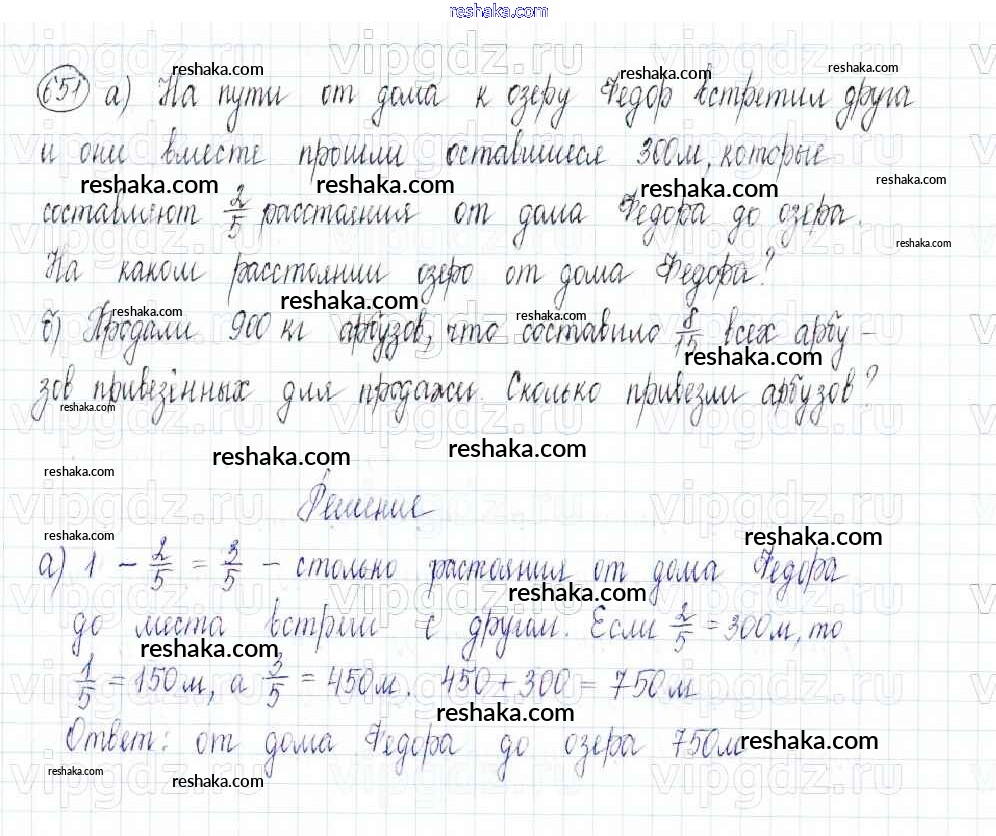 reshaka.com
651 а) На пути от дома к озеру Федор встретил друга
и они вместе прошли оставшиеся 300м, которые
составляют 2/5 расстояния от дома Федора до озера.
На каком расстоянии озеро от дома Федора?
б) Продали 900 кг арбузов, что составило 8/15 всех арбу-
зов привезённых для продажи. Сколько привезли арбузов?
Решение
а) 1 - 2/5 = 3/5 - столько растояния от дома Федора
до места встречи с другом. Если 2/5 = 300м, то
1/5 = 150м, а 3/5 = 450м. 450 + 300 = 750м
Ответ: от дома Федора до озера 750м